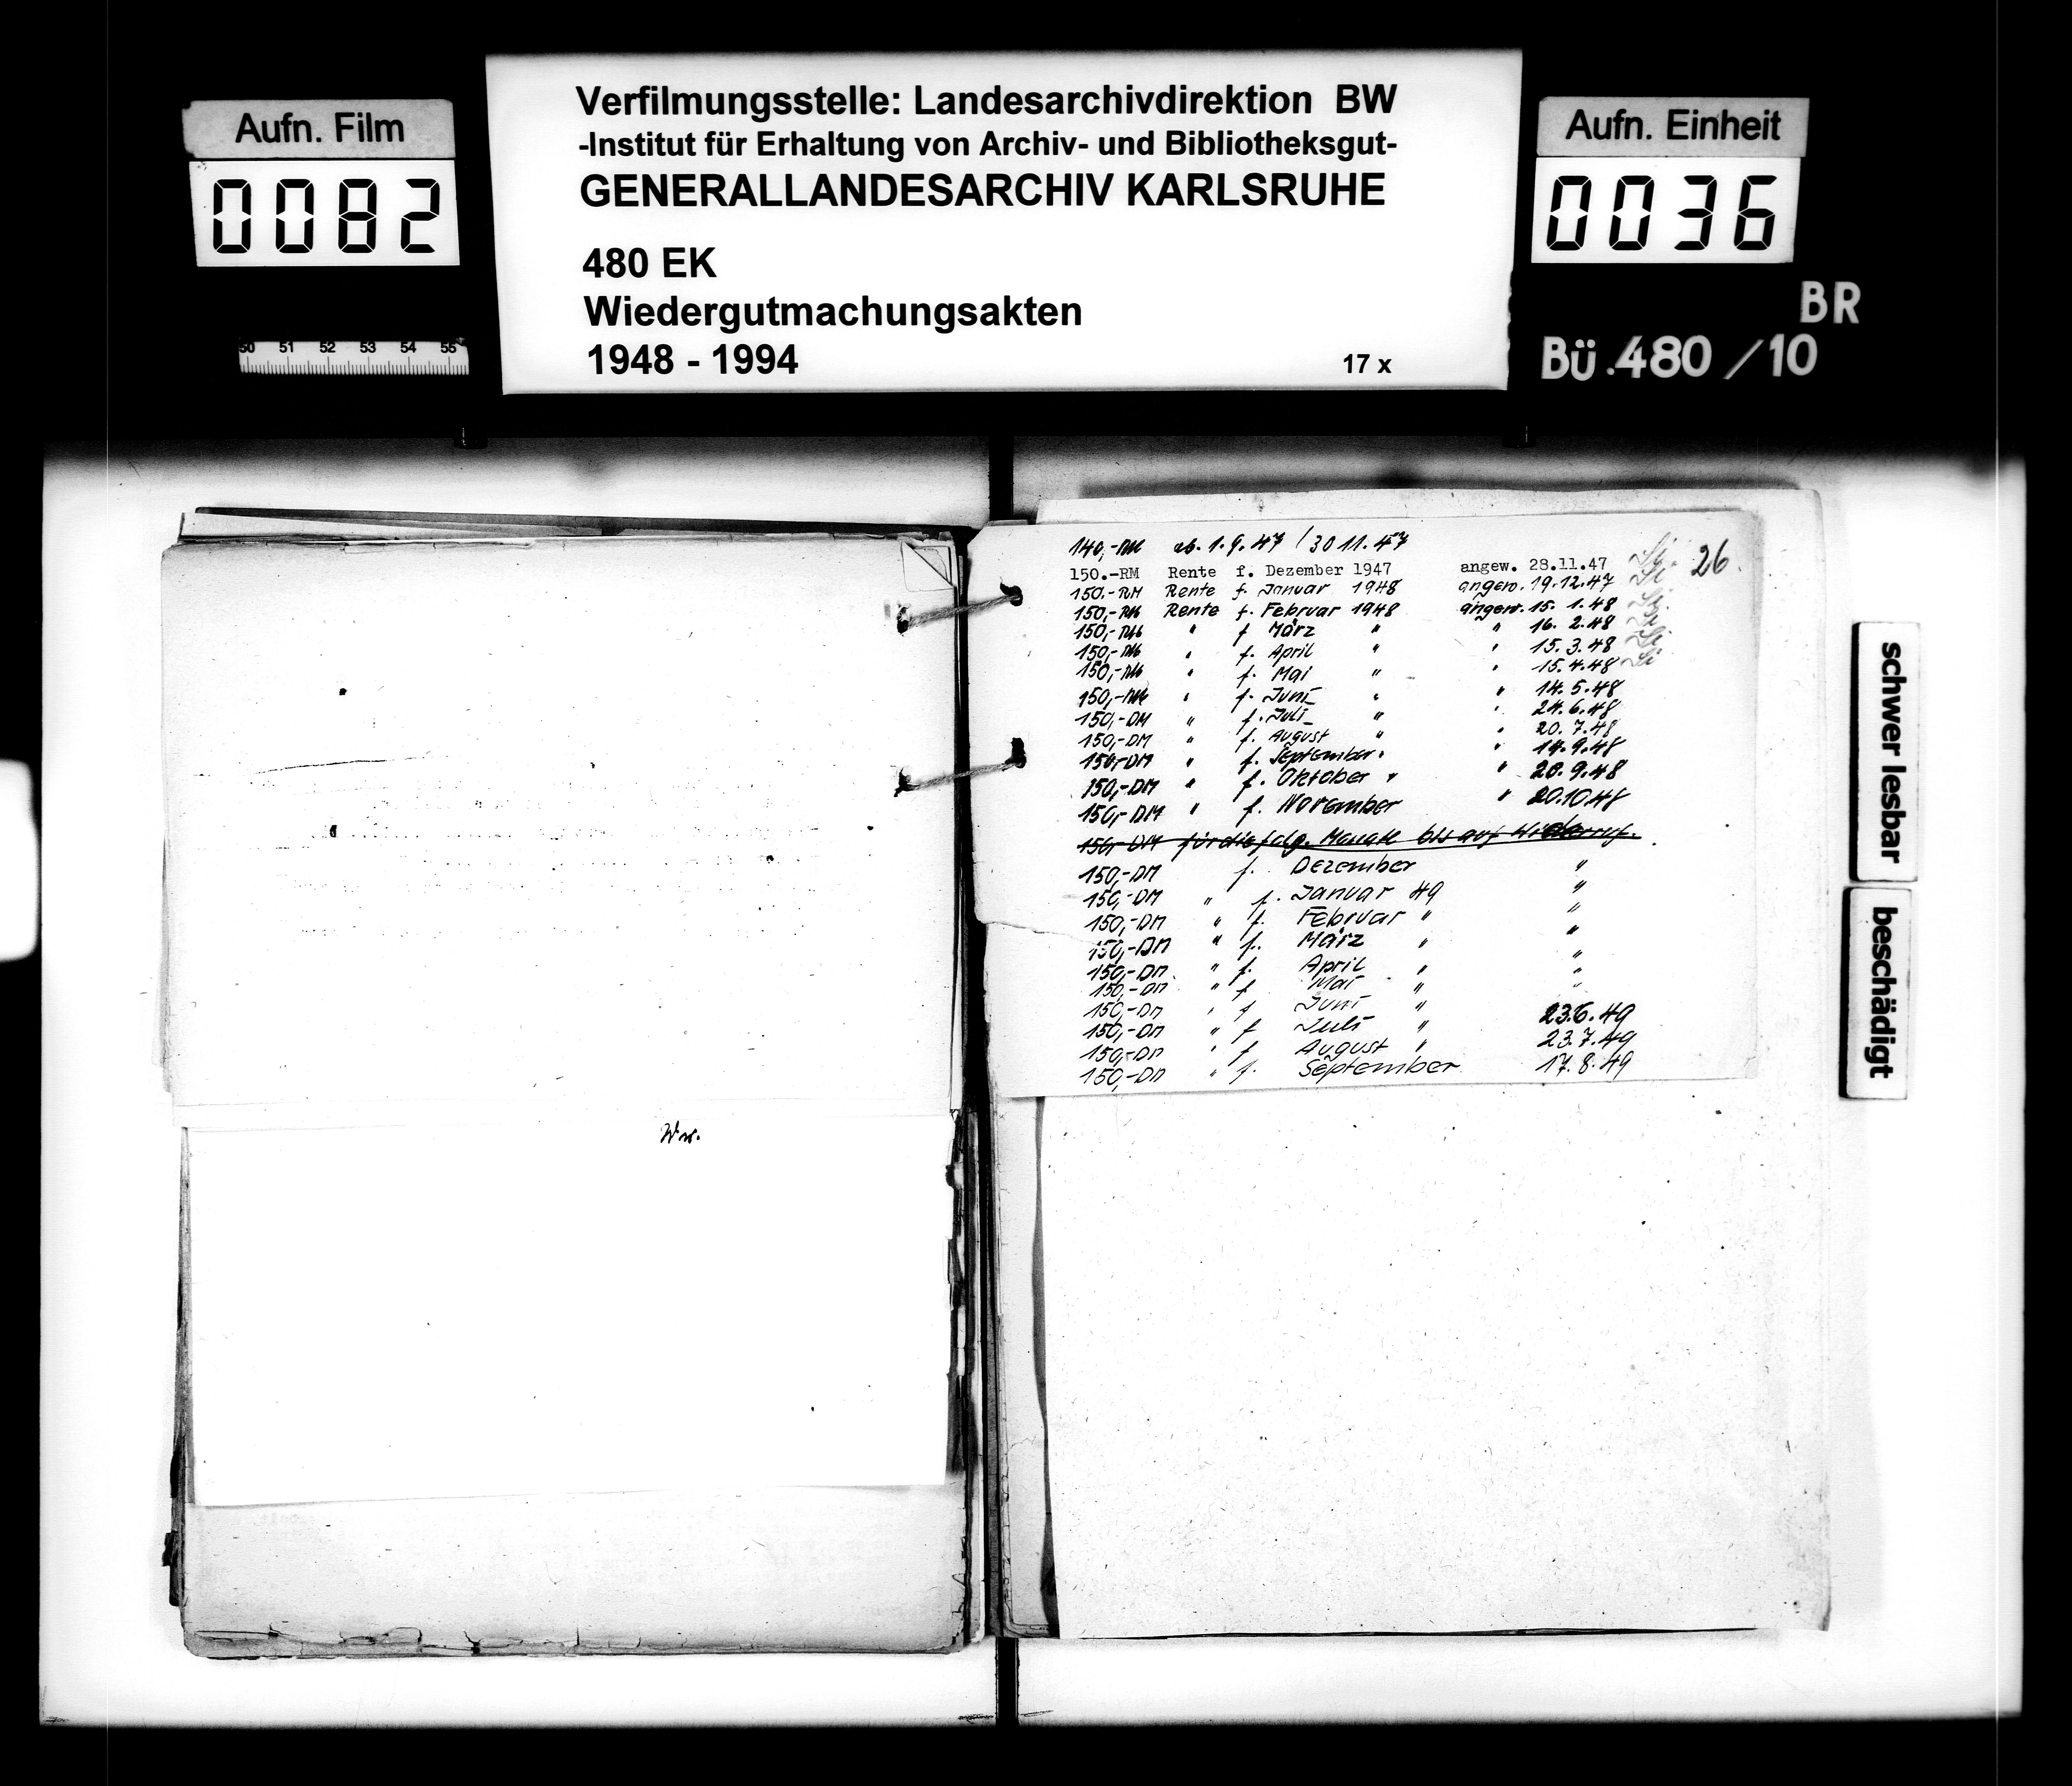 Aufn. Film
0082
50 51 52 53 54 55
Verfilmungsstelle: Landesarchivdirektion BW
-Institut für Erhaltung von Archiv- und Bibliotheksgut-
GENERALLANDESARCHIV KARLSRUHE
480 EK
Wiedergutmachungsakten
1948 - 1994
17 x
Aufn. Einheit
0036
BR
Bü.480/10
Ww.
26.
140,-RM ab. 1.9.47 / 30 11.47
150.-RM Rente f. Dezember 1947 angew. 28.11.47
150.-RM Rente f. Januar 1948 angew. 19.12.47
150,-RM Rente f. Februar 1948 angew. 15. 1.48
150,-RM " f März " " 16. 2.48
150,-RM " f. April " " 15.3.48
150,-RM " f. Mai " " 15.4.48
150,-RM " f. Juni " " 14.5.48
150,-DM " f. Juli " " 24.6.48
150,-DM " f. August " " 20.7.48
150,-DM " f. September " " 14.9.48
150,-DM " f. Oktober " " 20.9.48
150,-DM " f. November " 20.10.48
150,-DM für die folg. Monate bis auf Widerruf.
150,-DM f. Dezember "
150,-DM " f. Januar 49 "
150,-DM " f. Februar " "
150,-DM " f. März " "
150,-DM " f. April " "
150,-DM " f Mai " "
150,-DM " f Juni " "
150,-DM " f Juli " 23.6.49
150,-DM " f August " 23.7.49
150,-DM " f. September 17.8.49
schwer lesbar
beschädigt